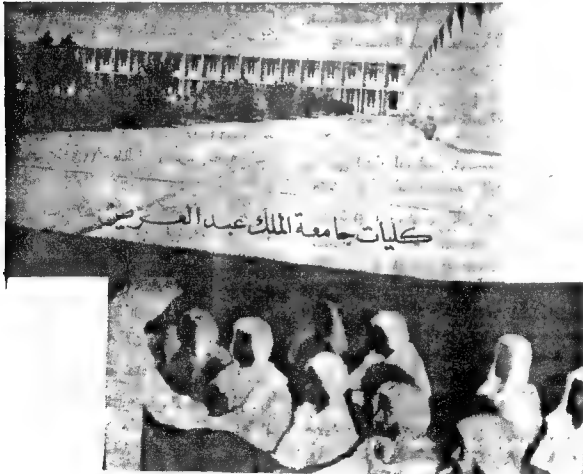 كليات جامعة الملك عبد العزيز